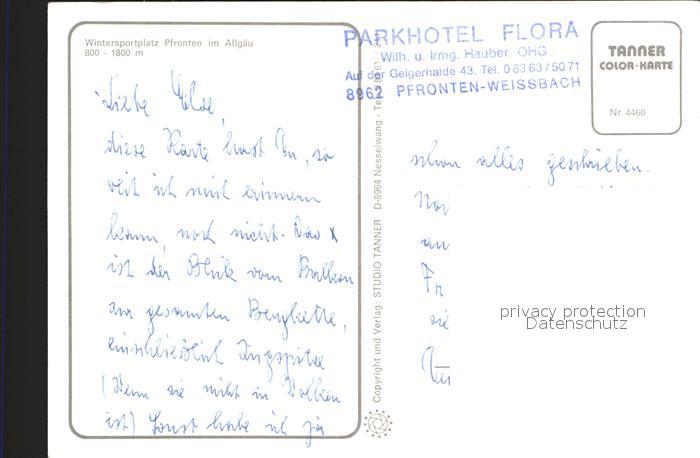 Wintersportplatz Pfronten im Allgäu
800 - 1800 m
Liebe Else,
diese Karte hast Du, so
weit ich mich erinnern
kann, noch nicht. Das x
ist der Blick vom Balkon
zur gesamten Bergkette,
einschließlich Zugspitze
(Wenn sie nicht in Wolken
ist) Sonst habe ich ja
PARKHOTEL FLORA
Wilh. u. Irmg. Hauber OHG
Auf der Geigerhalde 43. Tel. 0 83 63 / 50 71
8962 PFRONTEN-WEISSBACH
TANNER
COLOR-KARTE
Nr. 4460
schon alles geschrieben.
an
sie
Copyright und Verlag: STUDIO TANNER D-8964 Nesselwang - Tel.
privacy protection
Datenschutz